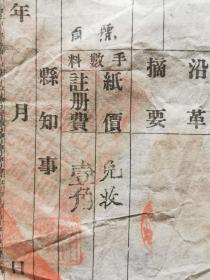 沿革
摘要
手數料
紙價 免收
註册費 壹角
縣知事
年月日